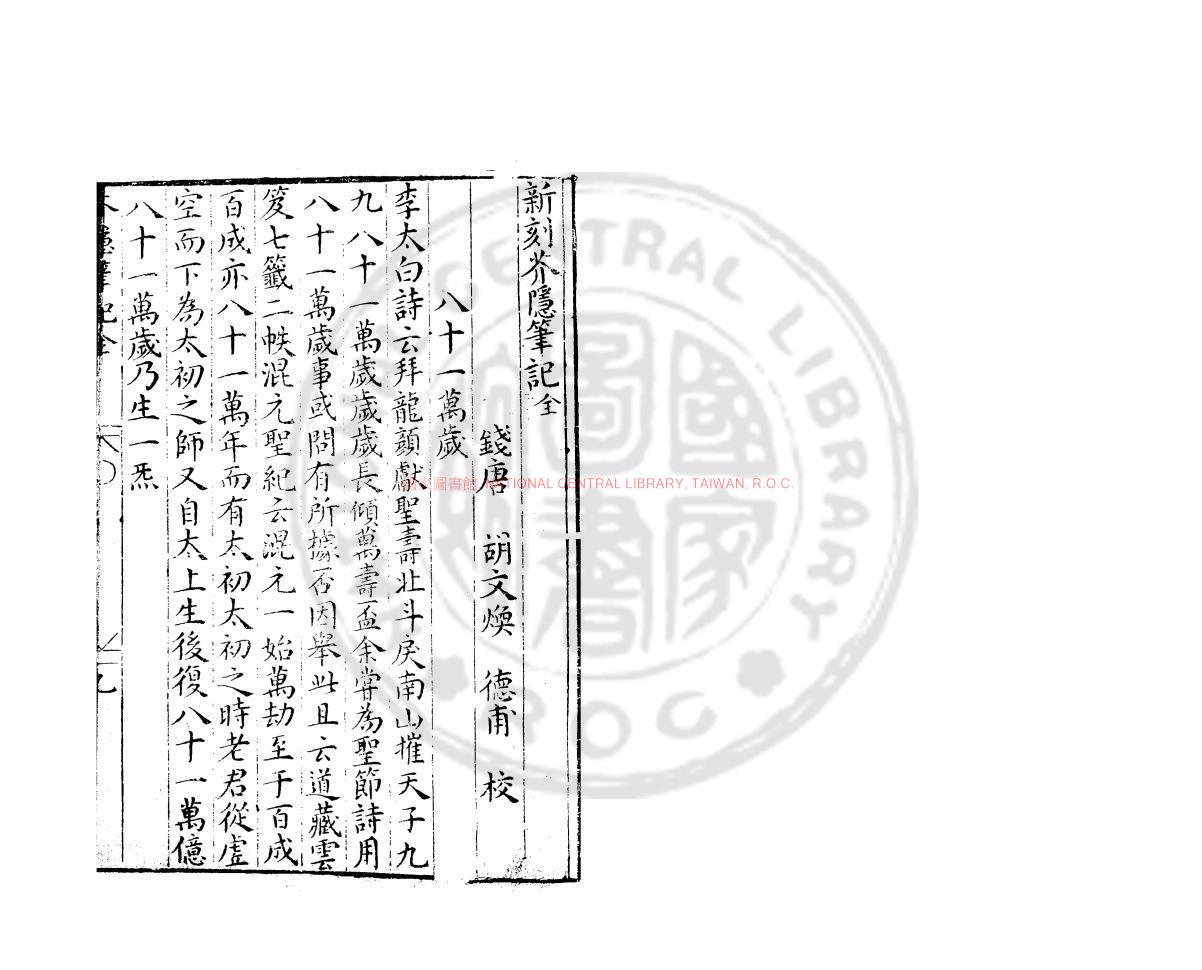 新刻芥隱筆記全
錢唐 胡文煥 德甫 校
八十一萬歲
李太白詩云拜龍顔獻聖壽壯斗戾南山摧天子九
九八十一萬歲歲歲長傾萬壽盃余甞為聖節詩用
八十一萬歲事或問有所據否因舉此且云道藏雲
笈七籤二帙混元聖紀云混元一始萬劫至于百成
百成亦八十一萬年而有太初太初之時老君從虛
空而下為太初之師又自太上生後復八十一萬億
八十一萬歲乃生一炁
筆記全
國家圖書館 NATIONAL CENTRAL LIBRARY, TAIWAN, R.O.C.
CENTRAL LIBRARY
ROC
國家圖書